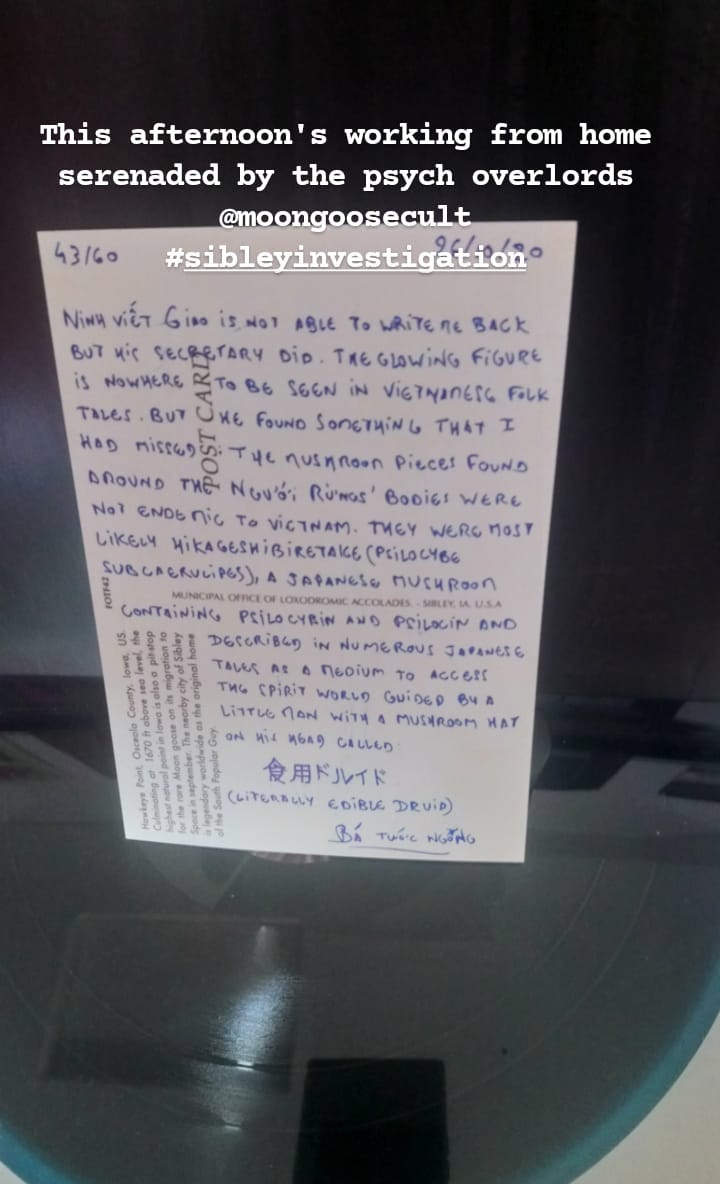 This afternoon's working from home
serenaded by the psych overlords
@moongoosecult
#sibleyinvestigation
43/60
NiNH ViẾT GiAO iS NOT ABLE TO WRiTE ME BACK
BUT HiS SECRETARY DiD. THE GLOWiNG FiGURE
iS NOWHERE TO BE SEEN iN ViETNAMESE FOLK
TALES. BUT HE FOUND SOMETHiNG THAT I
HAD MiSSED: THE MUSHROOM PiECES FOUND
AROUND THE NGƯỜI RỪNGS' BODiES WERE
NOT ENDEMiC TO ViETNAM. THEY WERE MOST
LiKELY HiKAGESHiBiRETAKE (PSiLOCYBE
SUBCAERULiPES), A JAPANESE MUSHROOM
CONTAiNiNG PSiLOCYBiN AND PSiLOCiN AND
DESCRiBED iN NUMEROUS JAPANESE
TALES AS A MEDiUM TO ACCESS
THE SPiRiT WORLD GUiDED BY A
LiTTLE MAN WiTH A MUSHROOM HAT
ON HiS HEAD CALLED:
食用ドルイド
(LiTERALLY EDiBLE DRUiD)
BÁ TƯỚC NGỖNG
POST CARD
FOTF42
MUNICIPAL OFFICE OF LOXODROMIC ACCOLADES - SIBLEY, IA. U.S.A
Hawkeye Point, Osceola County, Iowa, US.
Culminating at 1670 ft above sea level, the
highest natural point in Iowa is also a pit-stop
for the rare Moon goose on its migration to
Space in september. The nearby city of Sibley
is legendary worldwide as the original home
of the South Popular Guy.